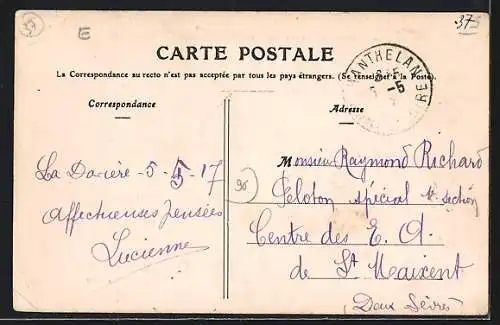 37
E
37
CARTE POSTALE
MANTHELAN
La Correspondance au recto n'est pas acceptée par tous les pays étrangers. (Se renseigner à la Poste).
-5
Correspondance
Adresse
La Dorière - 5 - 5 - 17
Affectueuses pensées
Lucienne
Monsieur Raymond Richard
Peloton spécial 4e section
Centre des E. A.
de St Maixent
(Deux Sèvres)